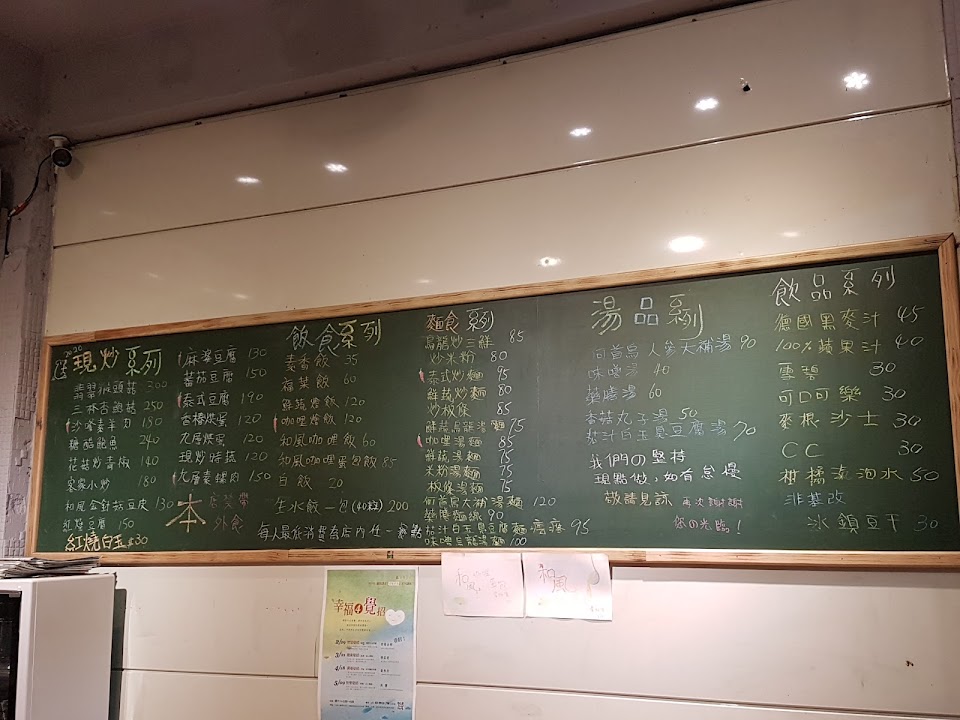 2020
現炒系列
翡翠猴頭菇 200
三杯杏鮑菇 250
沙嗲素羊肉 180
糖醋鮑魚 240
花菇炒青椒 140
客家小炒 180
和風金針菇豆皮 130
豆腐 150
紅燒白玉 $30
麻婆豆腐 130
蕃茄豆腐 150
泰式豆腐 190
香椿烘蛋 120
九層烘蛋 120
現炒時蔬 120
九層素腰肉 150
本店禁帶
外食
飲食系列
素香飯 35
福菜飯 60
鮮蔬燴飯 120
咖哩燴飯 120
和風咖哩飯 60
和風咖哩蛋包飯 85
白飯 20
生水餃一包(40粒) 200
每人最低消費為店內任一餐點
麵食系列
烏龍炒三鮮 85
炒米粉 80
泰式炒麵 95
鮮蔬炒麵 80
炒板條 85
鮮蔬烏龍湯麵 75
咖哩湯麵 85
鮮蔬湯麵 75
米粉湯麵 75
板條湯麵 75
何首烏大補湯麵 120
藥膳麵線 90
茄汁白玉臭豆腐麵 95
味噌烏龍湯麵 100
湯品系列
何首烏人參大補湯 90
味噌湯 40
藥膳湯 60
杏菇丸子湯 50
茄汁白玉臭豆腐湯 70
我們の堅持
現點做,如有怠慢
敬請見諒 再次謝謝
您の光臨!
飲品系列
德國黑麥汁 45
100%蘋果汁 40
雪碧 30
可口可樂 30
麥根沙士 30
CC 30
柑橘氣泡水 50
非基改
冰鎮豆干 30
幸福覺招
和風
和風